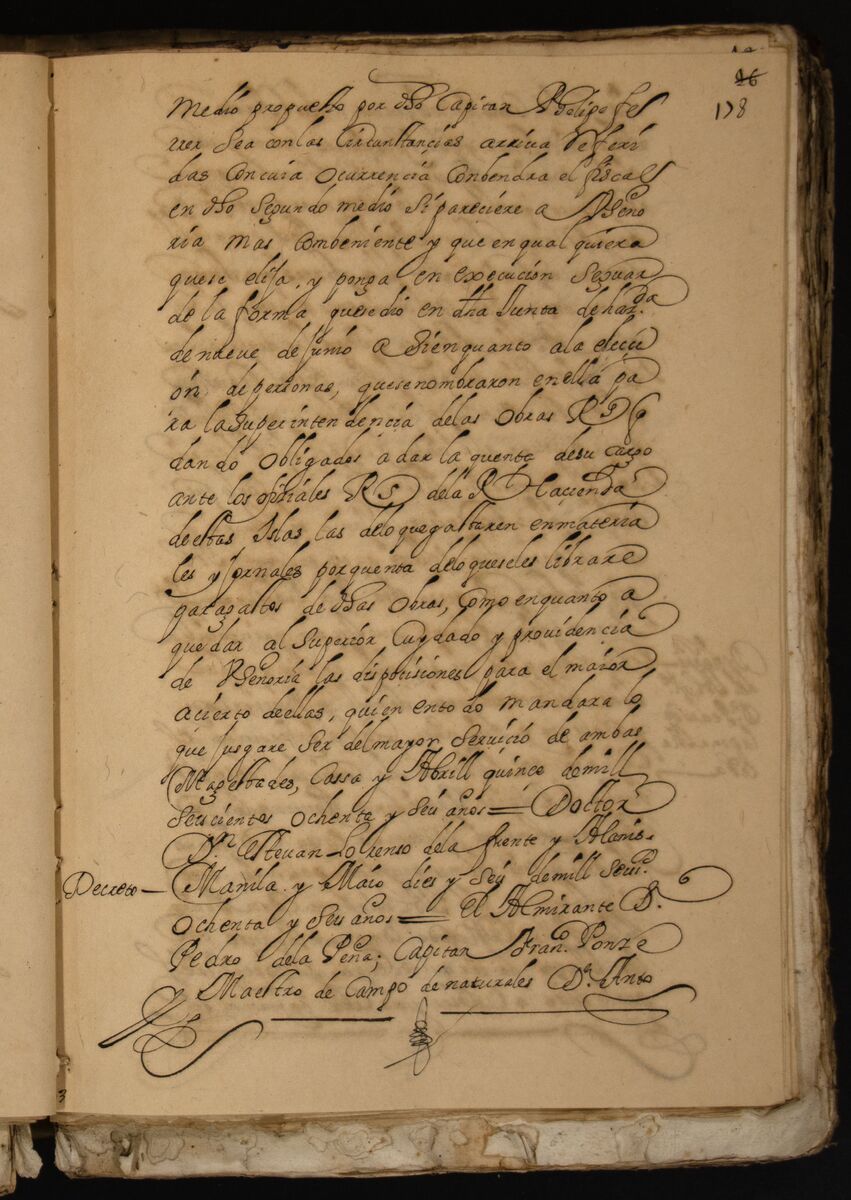 26
178
medio propuesto por dho Capitan Phelipe fer
rer Sea con las Circunstancias arriva Referi
das Con cuia Ocurrencia Conbendra el fiscal
en dho Segundo medio Si pareciere a Vseño
ria mas combeniente y que en qual quiera
que se elija, y ponga en execucion Seguar
de la forma que se dio en dha Junta de haz.da
de nueve de Junio a Sien quanto a la elecci
on de personas, que se nombraron en ella pa
ra la Superintendencia de las Obras Rs
dando Obligados a dar la quenta de su cargo
ante los ofiziales Rs de la Rl Hacienda
destas Islas las de lo que gastaren en materia
les y Jornales por quenta de lo que se les librare
para gastos de dhas Obras, Como en quanto a
quedar al Superior Cuydado y providencia
de Vseñoria las disposiciones para el maior
acierto de ellas, quien en todo mandara lo
que Jusgare Ser del mayor Servicio de ambas
Magestades, Cassa y Abrill quince de mill
Seiscientos Ochenta y Seis años = Doctor
Dn. Estevan Lorenso de la fuente y Alanis.
Decreto — Manila y Maio dies y Seis de mill Seisc.
Ochenta y Seis años = El Almirante D.
Pedro de la Peña; Capitan Fran.co Ponze
Maestro de Campo de naturales D. Anto
3